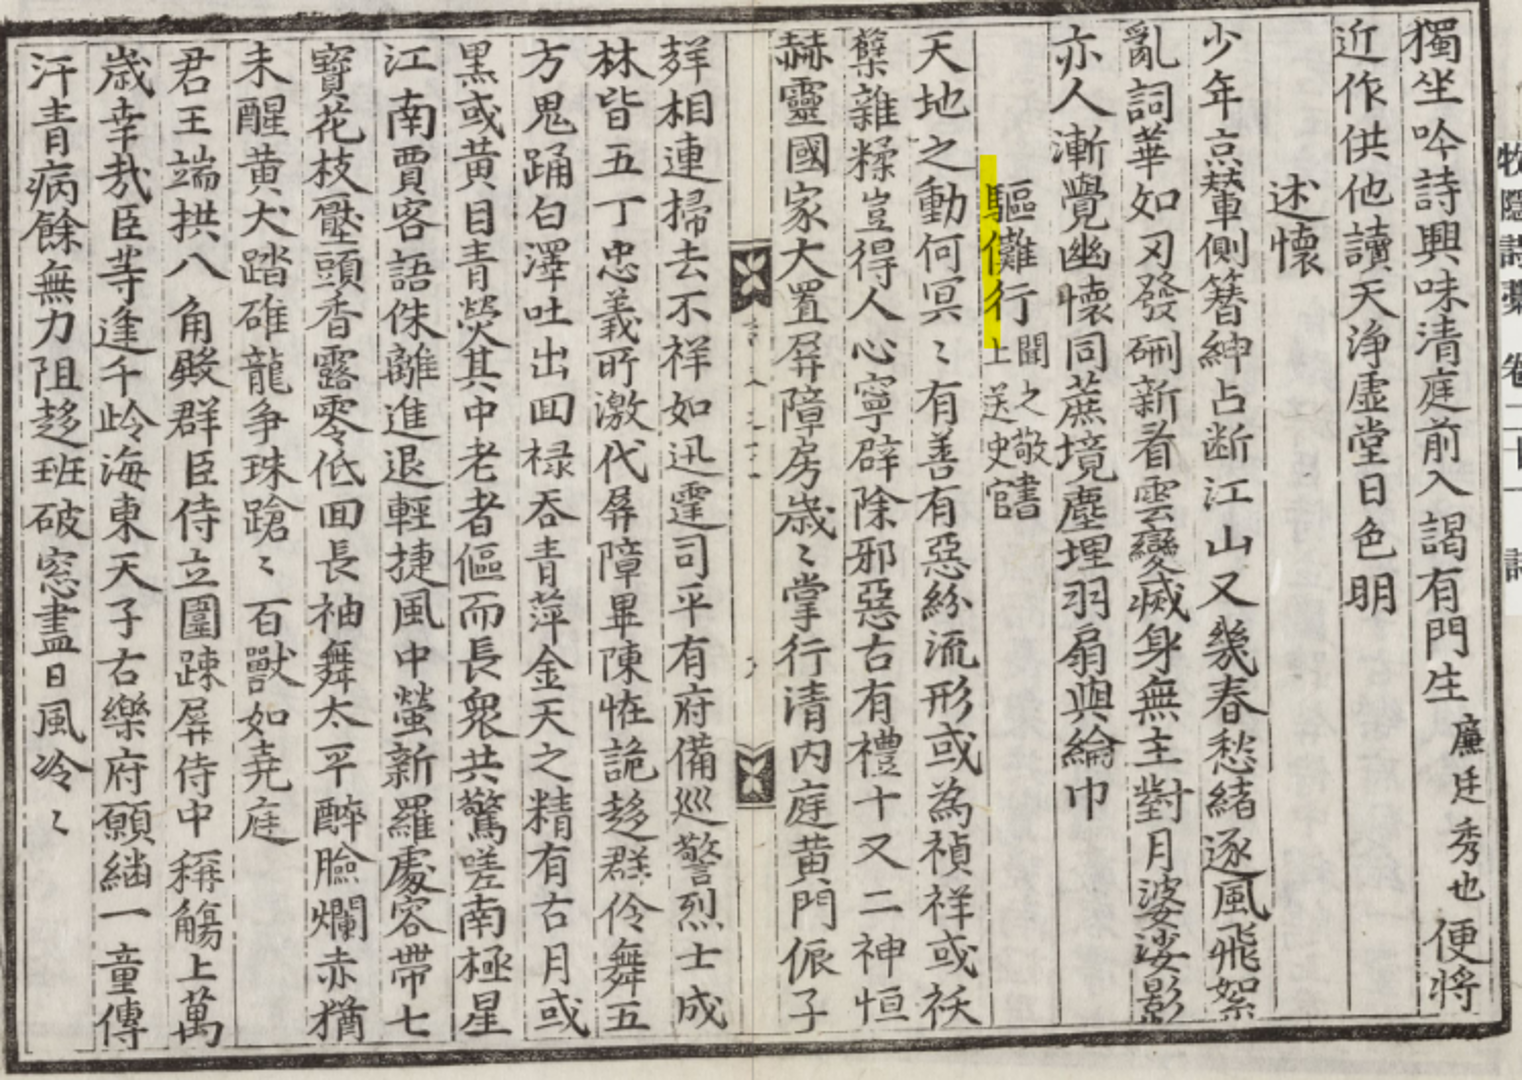 牧隱詩藁 卷二十一 詩
獨坐吟詩興味清庭前入謁有門生廉廷秀也便將
近作供他讀天淨虛堂日色明
述懷
少年京輦側簪紳占断江山又幾春愁緒逐風飛絮
亂詞華如刃發硎新看雲變滅身無主對月婆娑影
亦人漸覺幽懷同蔗境塵埋羽扇與綸巾
驅儺行聞之敬書
上送史官
天地之動何冥〻有善有惡紛流形或為禎祥或祅
孽雜糅豈得人心寧辟除邪惡古有禮十又二神恒
赫靈國家大置屏障房歲〻掌行清内庭黄門侲子
聲相連掃去不祥如迅霆司平有府備巡警烈士成
林皆五丁忠義所激代屏障畢陳恠詭趍群伶舞五
方鬼踊白澤吐出囬禄吞青萍金天之精有古月或
黒或黄目青熒其中老者傴而長衆共驚嗟南極星
江南賈客語侏離進退輕捷風中螢新羅處容帶七
寶花枝壓頭香露零低囬長袖舞太平醉臉爛赤猶
未醒黄犬踏碓龍争珠蹌〻百獸如堯庭
君王端拱八角殿群臣侍立圍踈屏侍中稱觴上萬
歲幸㢤臣等逢千岭海東天子古樂府願繼一童傳
汗青病餘無力阻趍班破窓盡日風冷〻